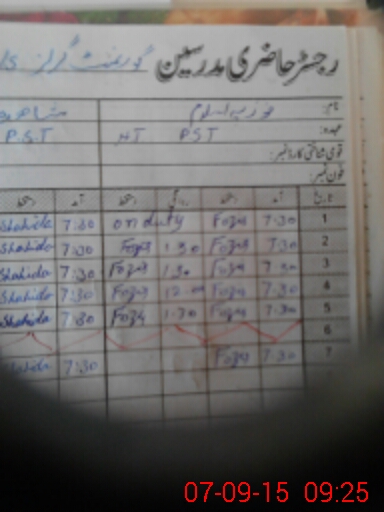 رجسٹر حاضری مدرسین گورنمنٹ گرلز
نام:
عہدہ: PST HT P.S.T
قومی شناختی کارڈ نمبر:
فون نمبر:
تاریخ آمد دستخط روانگی دستخط آمد دستخط
1 7:30 Foziq on duty 7:30 Shahida
2 7:30 Foziq 1:30 Foziq 7:30 Shahida
3 7:30 Foziq 1:30 Foziq 7:30 Shahida
4 7:30 Foziq 12:00 Foziq 7:30 Shahida
5 7:30 Foziq 1:30 Foziq 7:30 Shahida
6
7 7:30 Foziq 7:30 Shahida
07-09-15 09:25